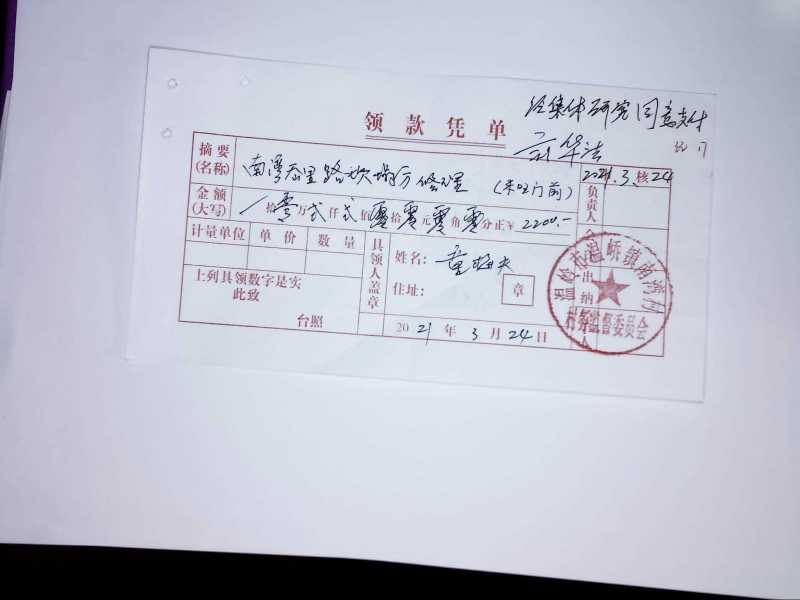 经集体研究同意支付
领款凭单
2021.3.24
摘要
(名称)
南湾
路坎塌方修理
(朱旺门前)
核
负责人
金额
(大写)
拾零万贰仟贰佰零拾零元零角零分正¥2200.-
计量单位
单价
数量
具领人盖章
姓名:
住址:
章
出纳
上列具领数字是实
此致
台照
2021年3月24日
温岭市温峤镇南湾村
村务监督委员会